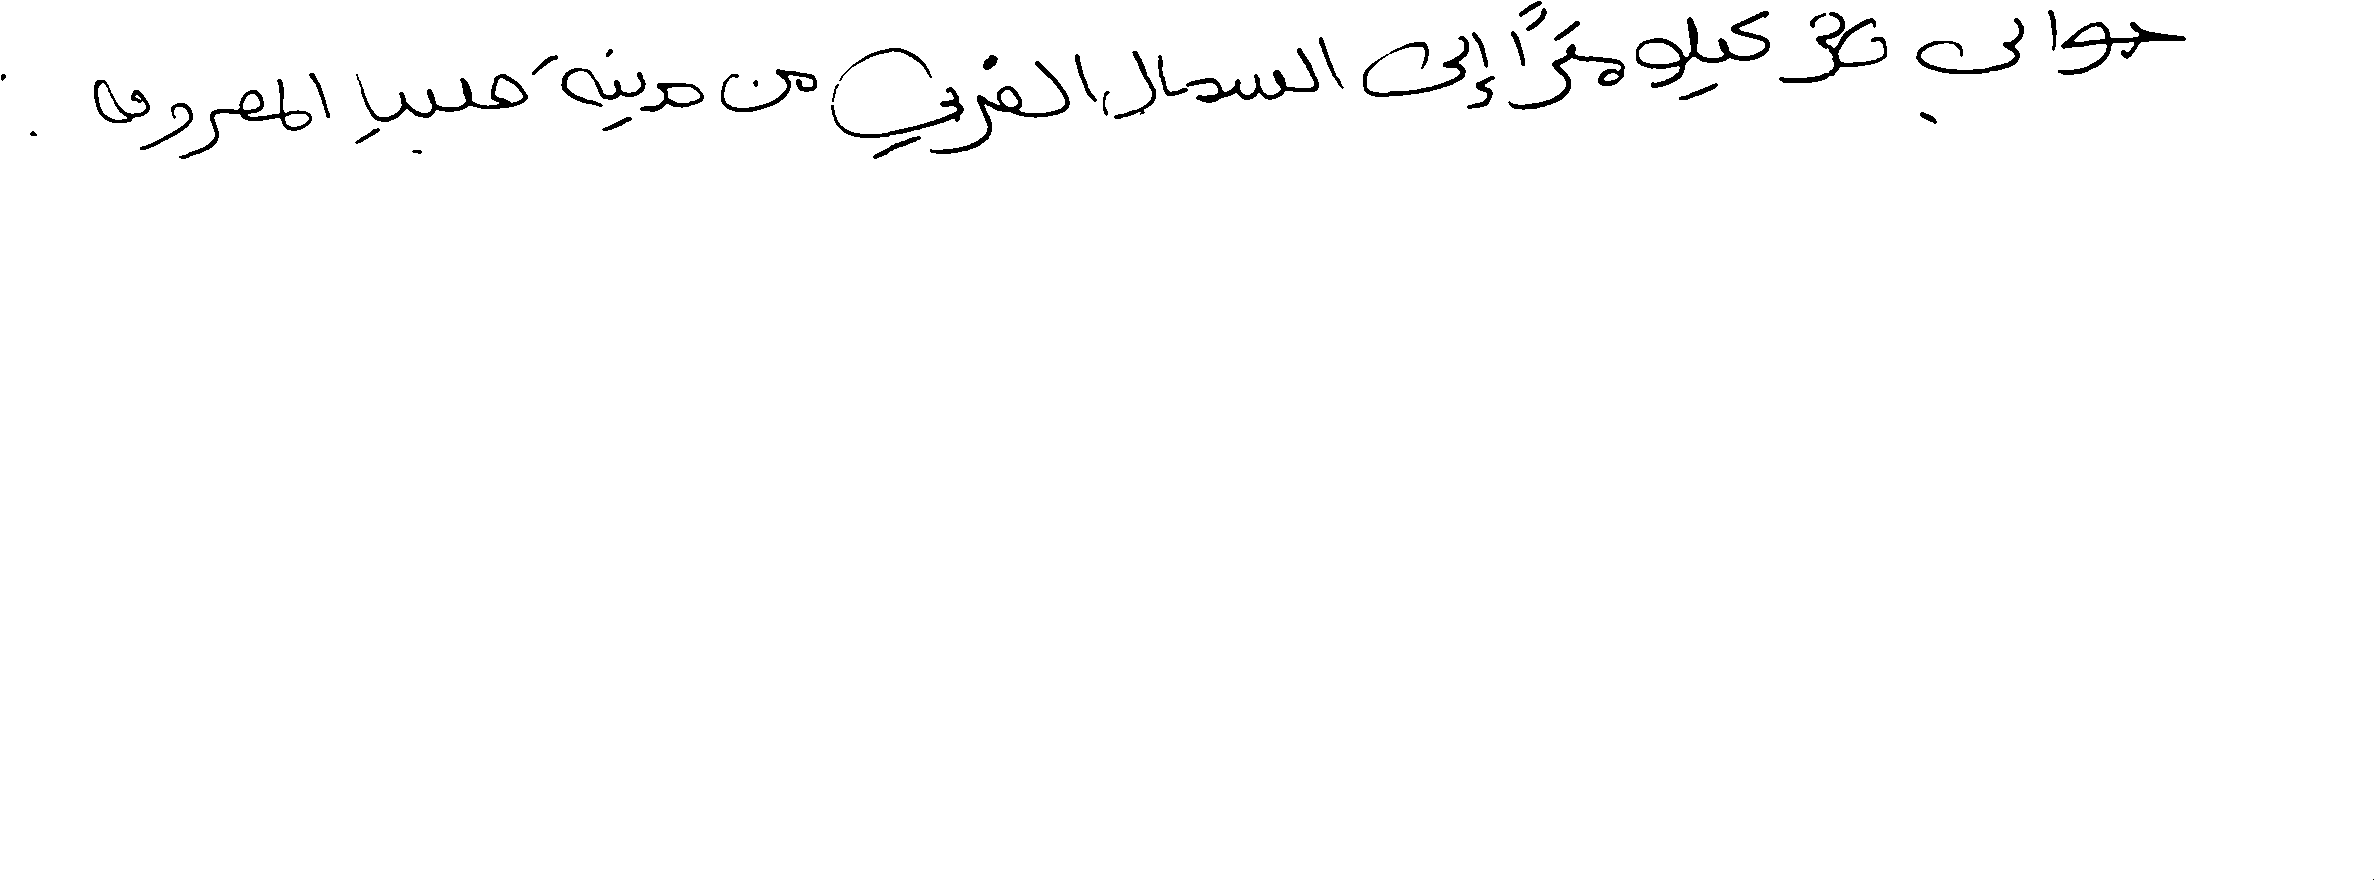 حوالي 36 كيلومترًا إلى الشمال الغربي من مدينة المعروفة